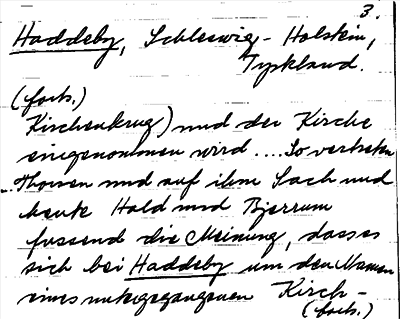 3.
Haddeby, Schleswig-Holstein,
Tyskland.
(forts.)
Kirchenkrug) und der Kirche
eingenommen wird .... So vertreten
Thorsen und auf ihm Sach und
heute Hald und Bjerrum
fussend die Meinung, dass es
sich bei Haddeby um den Namen
eines untergegangenen Kirch-
(forts.)